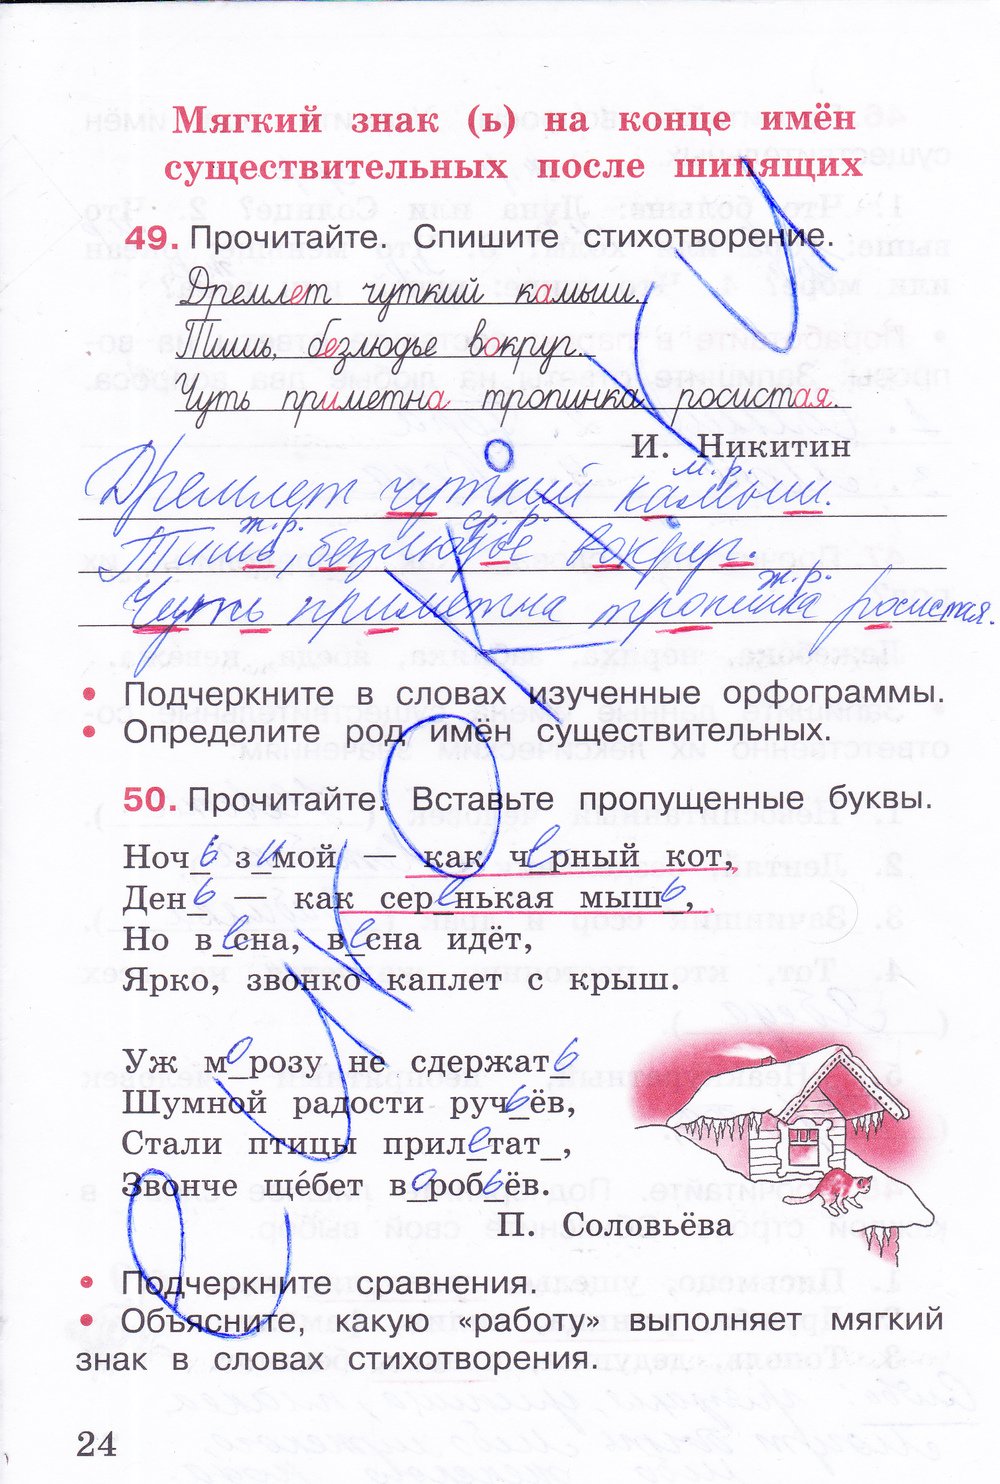 Мягкий знак (ь) на конце имён
существительных после шипящих
49. Прочитайте. Спишите стихотворение.
Дремлет чуткий камыш.
Тишь, безлюдье вокруг.
Чуть приметна тропинка росистая.
И. Никитин
м. р.
Дремлет чуткий камыш.
ж. р. ср. р.
Тишь, безлюдье вокруг.
ж. р.
Чуть приметна тропинка росистая.
• Подчеркните в словах изученные орфограммы.
• Определите род имён существительных.
50. Прочитайте. Вставьте пропущенные буквы.
Ночь зимой — как чёрный кот,
День — как серенькая мышь,
Но весна, весна идёт,
Ярко, звонко каплет с крыш.
Уж морозу не сдержать
Шумной радости ручьёв,
Стали птицы прилетат_,
Звонче ще́бет воробьёв.
П. Соловьёва
• Подчеркните сравнения.
• Объясните, какую «работу» выполняет мягкий
знак в словах стихотворения.
24